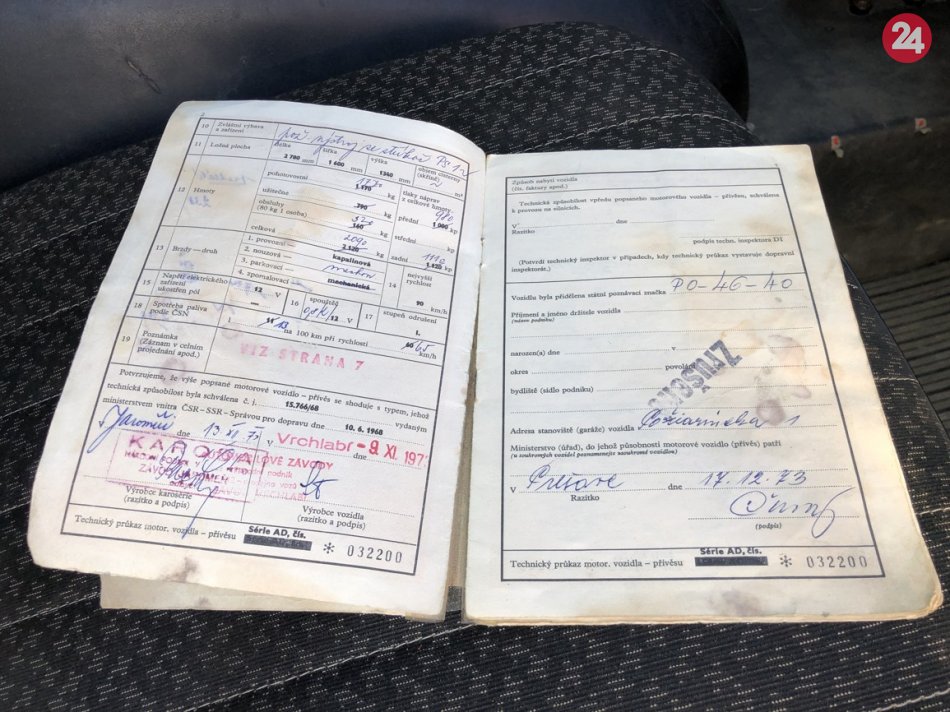 24
10 Zvláštní výbava a zařízení
11 Ložná plocha
délka šířka výška
2 780 mm 1 600 mm 1340 mm
objem cisterny (skříně)
12 Hmoty
pohotovostní 1770 1.170 kg
užitečné 790 kg
obsluhy (80 kg 1 osoba) 320 160 kg
celková 2090 2.120 kg
tlaky náprav z celkové hmoty
přední 980 1 000 kp
střední kp
zadní 1110 1.120 kp
13 Brzdy — druh
1. provozní — kapalinová
2. nouzová —
3. parkovací — mechanická
4. zpomalovací —
14 nejvyšší rychlost 90 km/h
15 Napětí elektrického zařízení ukostřen pól
12 V
16 spouštěč
12 V
17 stupeň odrušení
1.
18 Spotřeba paliva podle ČSN
l 11 13 na 100 km při rychlosti 65 km/h
19 Poznámka (Záznam v celním projednání apod.)
VIZ STRANA 7
Potvrzujeme, že výše popsané motorové vozidlo – přívěs se shoduje s typem, jehož
technická způsobilost byla schválena č. j. 15.766/68
ministerstvem vnitra ČSR–SSR–Správou pro dopravu dne 10. 6. 1968 vydaným
Jaroměř dne 13 XI 73 V Vrchlabí dne -9. XI. 197
KAROSA
Výrobce karosérie
(razítko a podpis)
Výrobce vozidla
(razítko a podpis)
Technický průkaz motor. vozidla – přívěsu Série AD, čís. * 032200
Způsob nabytí vozidla
(čís. faktury apod.)
Technická způsobilost vpředu popsaného motorového vozidla – přívěsu, schválena
k provozu na silnicích.
V dne
Razítko
podpis techn. inspektora DI
(Potvrdí technický inspektor v případech, kdy technický průkaz vystavuje dopravní
inspektorát.)
Vozidlu byla přidělena státní poznávací značka PO-46-40
Příjmení a jméno držitele vozidla
(název podniku)
narozen(a) dne v
okres povolání
bydliště (sídlo podniku)
ZRUŠENO
Adresa stanoviště (garáže) vozidla Požiarnická 1
Ministerstvo (úřad), do jehož působnosti motorové vozidlo (přívěs) patří
(u soukromých vozidel poznamenejte soukromé vozidlo)
V Prešove dne 17.12.73
Razítko
(podpis)
Technický průkaz motor. vozidla – přívěsu Série AD, čís. * 032200